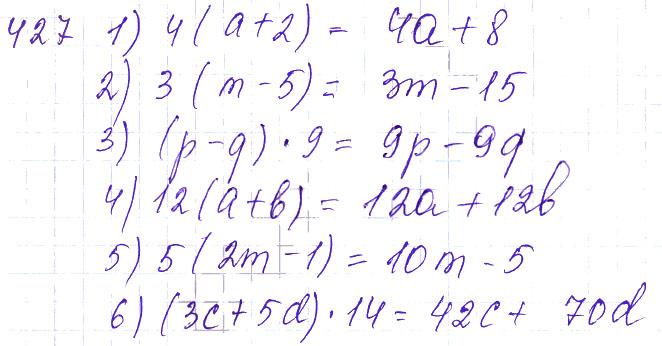 427 1) 4(a+2) = 4a+8
2) 3(m-5) = 3m-15
3) (p-q)·9 = 9p-9q
4) 12(a+b) = 12a+12b
5) 5(2m-1) = 10m-5
6) (3c+5d)·14 = 42c+ 70d